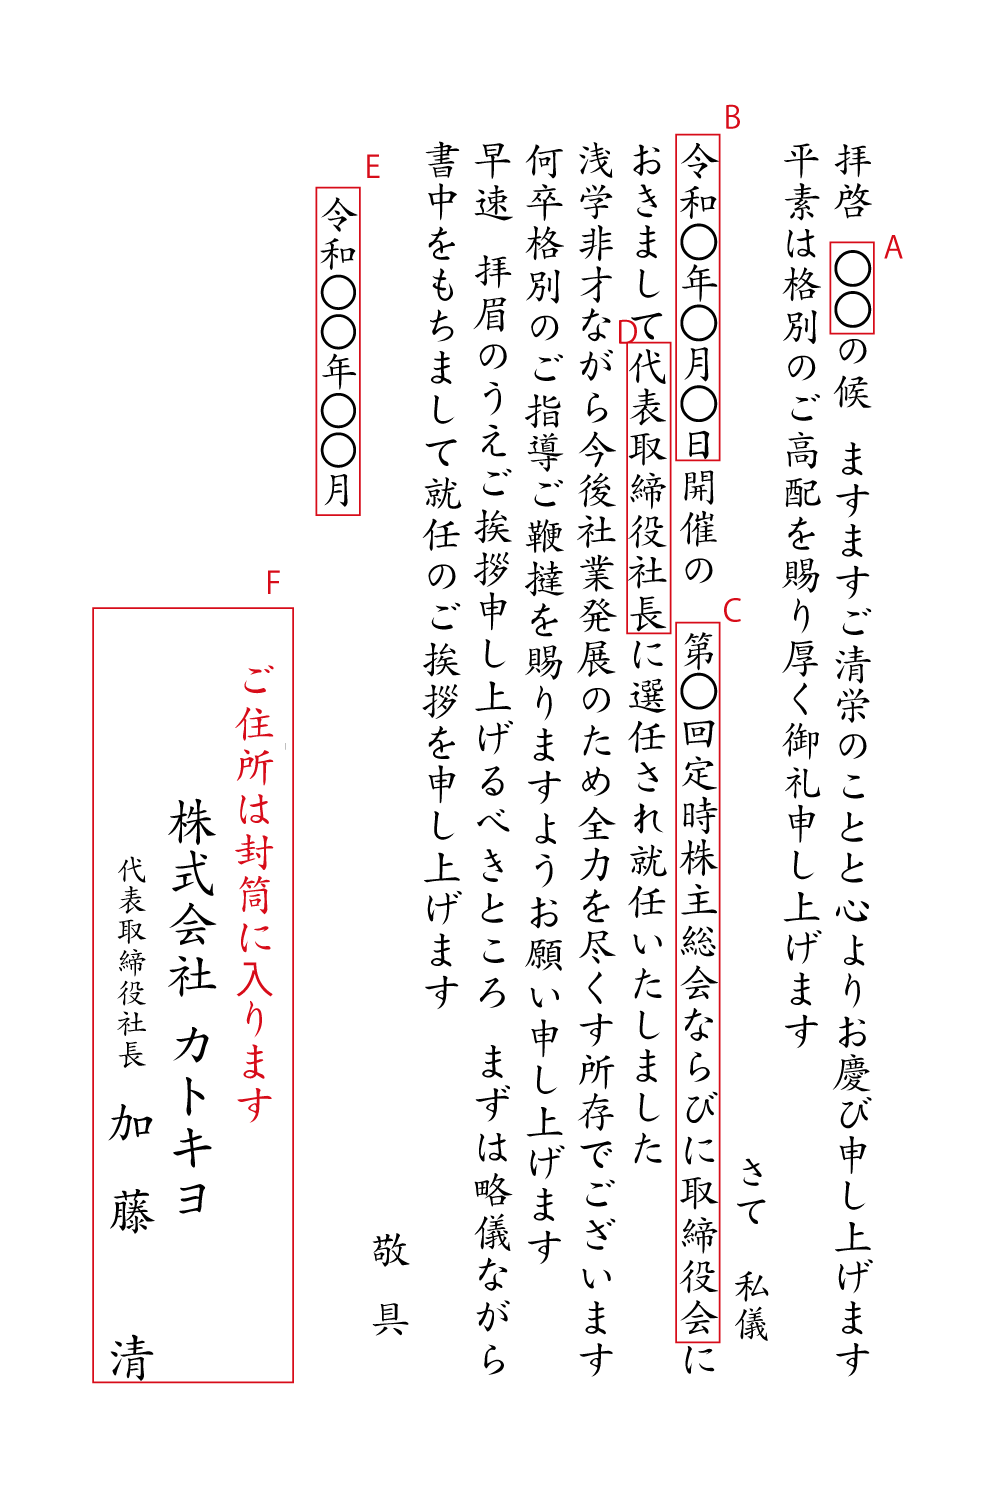 A
拝啓 〇〇の候 ますますご清栄のことと心よりお慶び申し上げます
平素は格別のご高配を賜り厚く御礼申し上げます
さて 私儀
B
C
令和〇年〇月〇日開催の 第〇回定時株主総会ならびに取締役会に
D
おきまして代表取締役社長に選任され就任いたしました
浅学非才ながら今後社業発展のため全力を尽くす所存でございます
何卒格別のご指導ご鞭撻を賜りますようお願い申し上げます
早速 拝眉のうえご挨拶申し上げるべきところ まずは略儀ながら
書中をもちまして就任のご挨拶を申し上げます
敬具
E
令和〇〇年〇〇月
F
ご住所は封筒に入ります
株式会社 カトキヨ
代表取締役社長 加藤 清